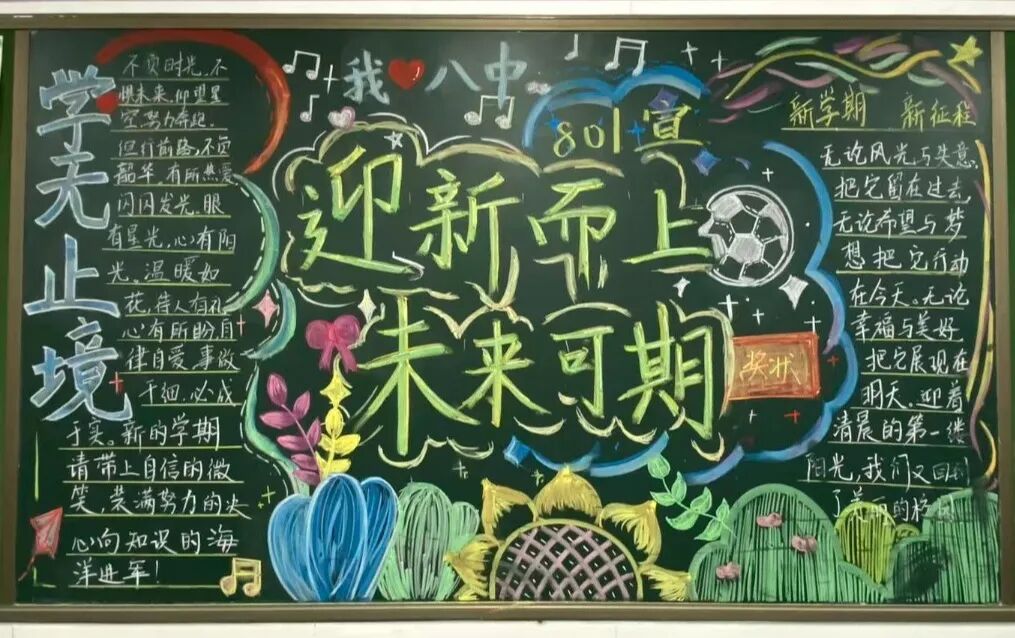 学无止境
不负时光,不
惧未来,仰望星
空,努力奔跑.
但行前路,不负
韶华,有所热爱
闪闪发光,眼
有星光,心有阳
光,温暖如
花,待人有礼
心有所盼,自
律自爱,事故
于细,必成
于实。新的学期
请带上自信的微
笑,装满努力的决
心向知识的海
洋进军!
我❤八中
801宣
迎新而上
未来可期
奖状
新学期 新征程
无论风光与失意,
把它留在过去,
无论希望与梦
想把它行动
在今天。无论
幸福与美好
把它展现在
明天,迎着
清晨的第一缕
阳光,我们又回到
了美丽的校园